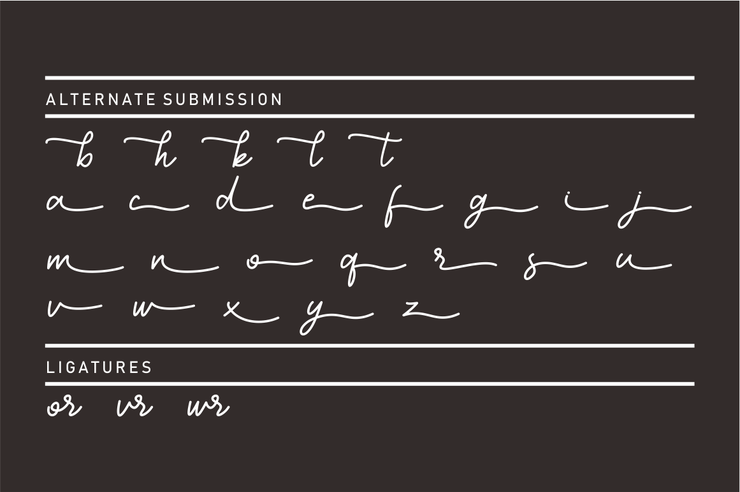 ALTERNATE SUBMISSION
b h k l t
a c d e f g i j
m n o q r s u
v w x y z
LIGATURES
or vr wr